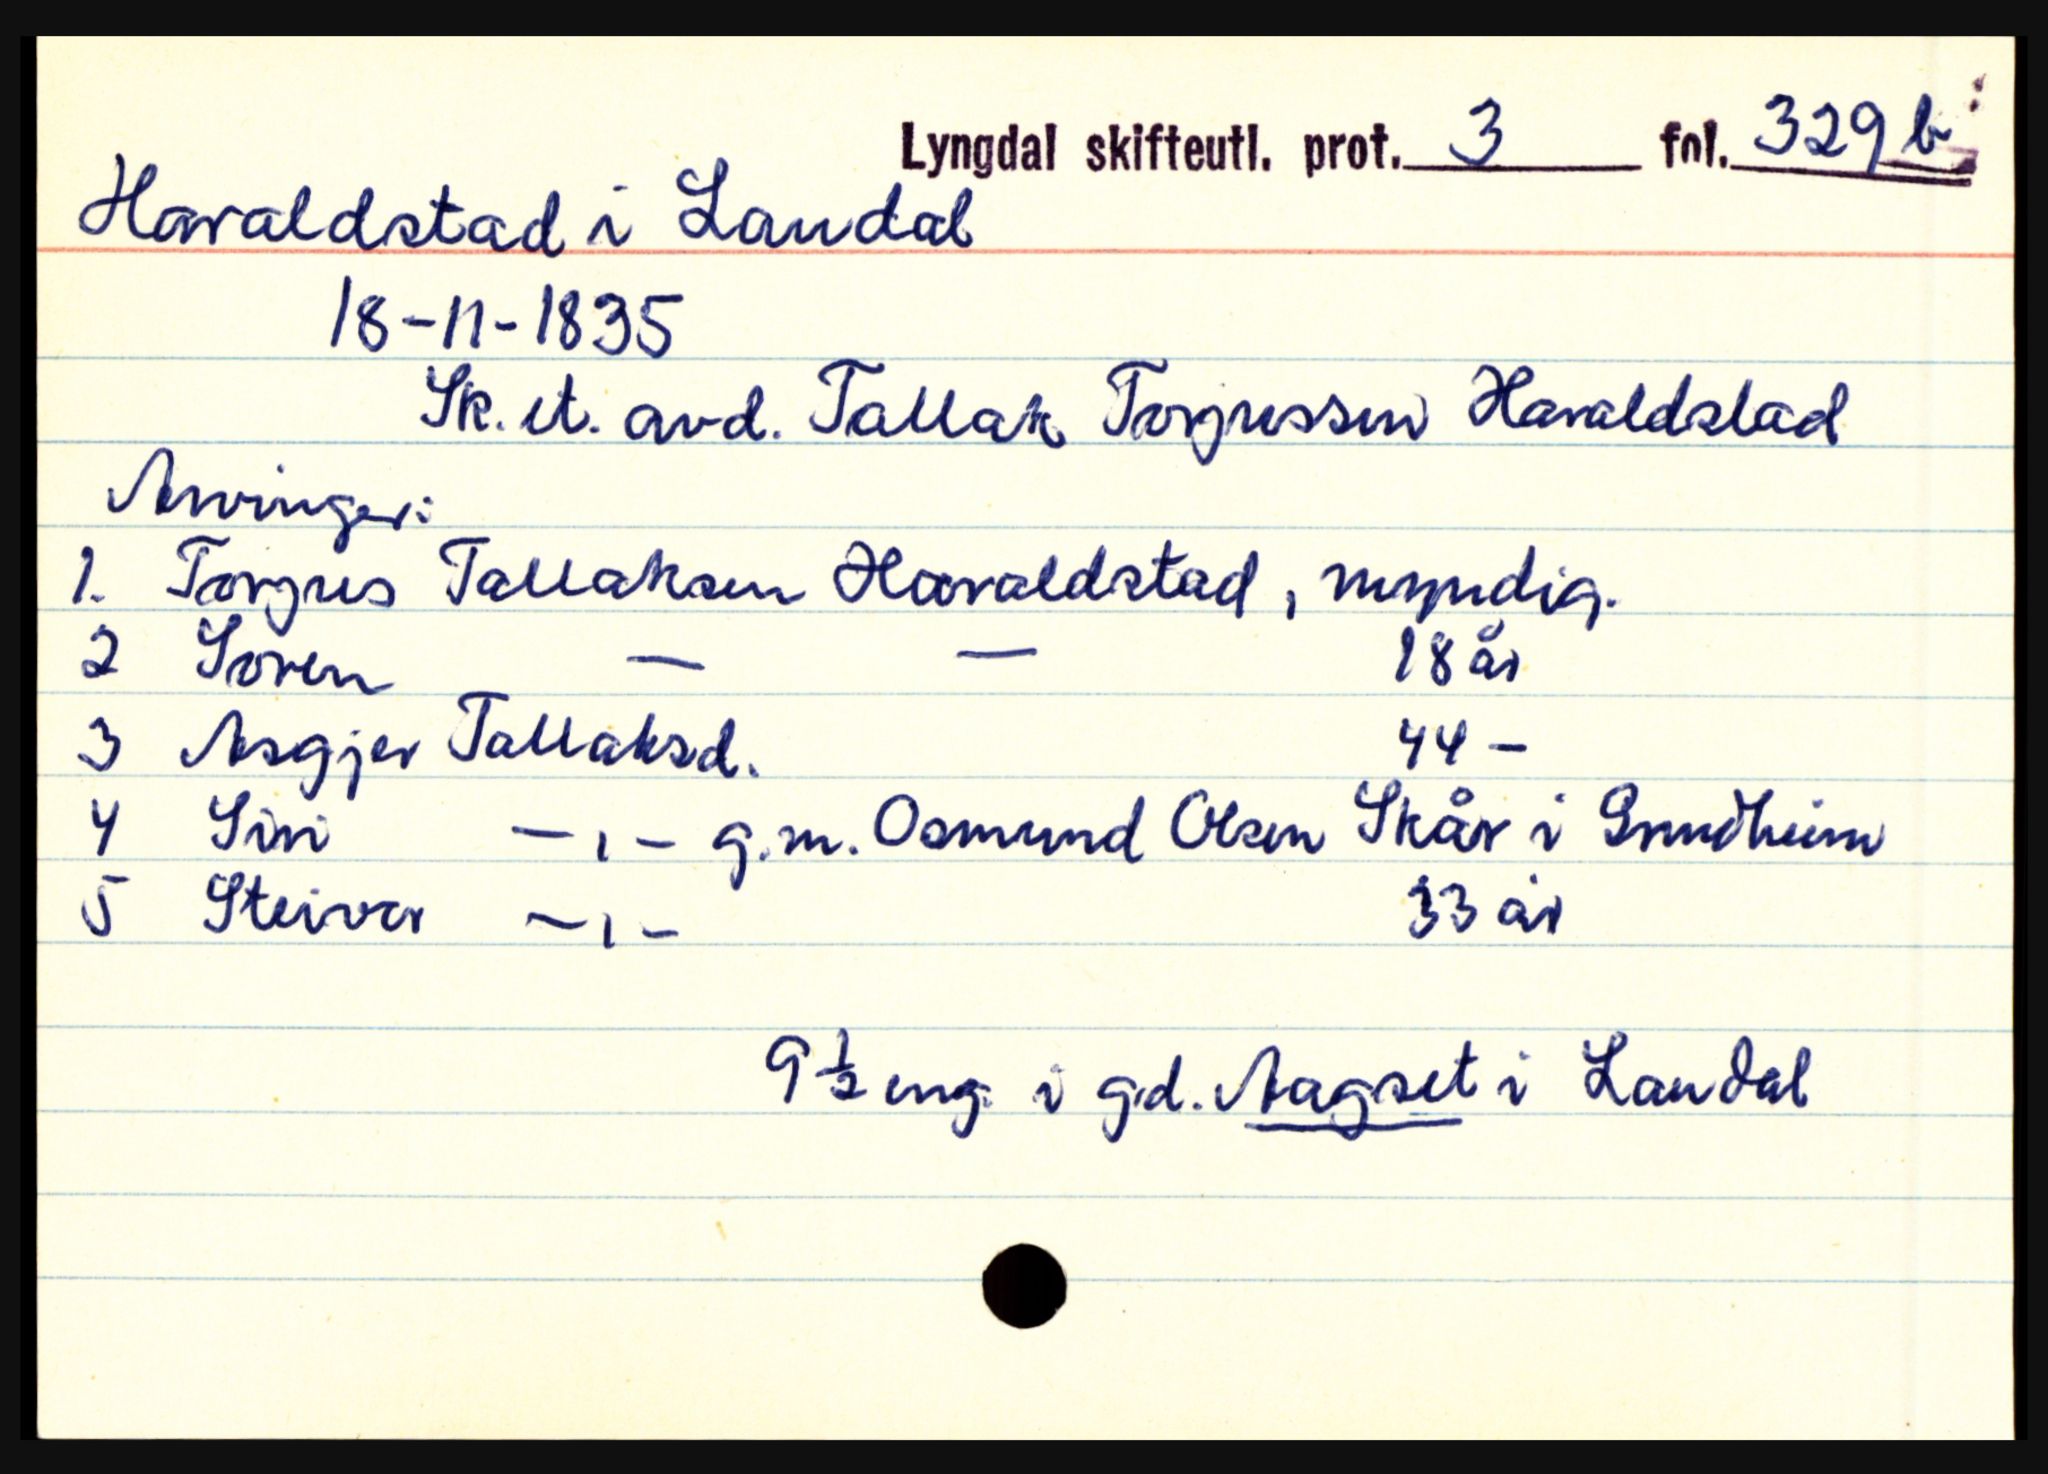 Lyngdal skifteutl. prot. 3 fol. 329 b
Haraldstad i Laudal
18-11-1835
Sk. et. avd. Tallak Torjussen Haraldstad
Arvinger:
1. Torjus Tallaksen Haraldstad, myndig.
2 Soren — — 18 år
3 Asgjer Tallaksd. 44 -
4 Siri -,- g.m. Osmund Olsen Skår i Grindheim
5 Steivor -,- 33 år
9 ½ eng. i gd. Aagset i Laudal